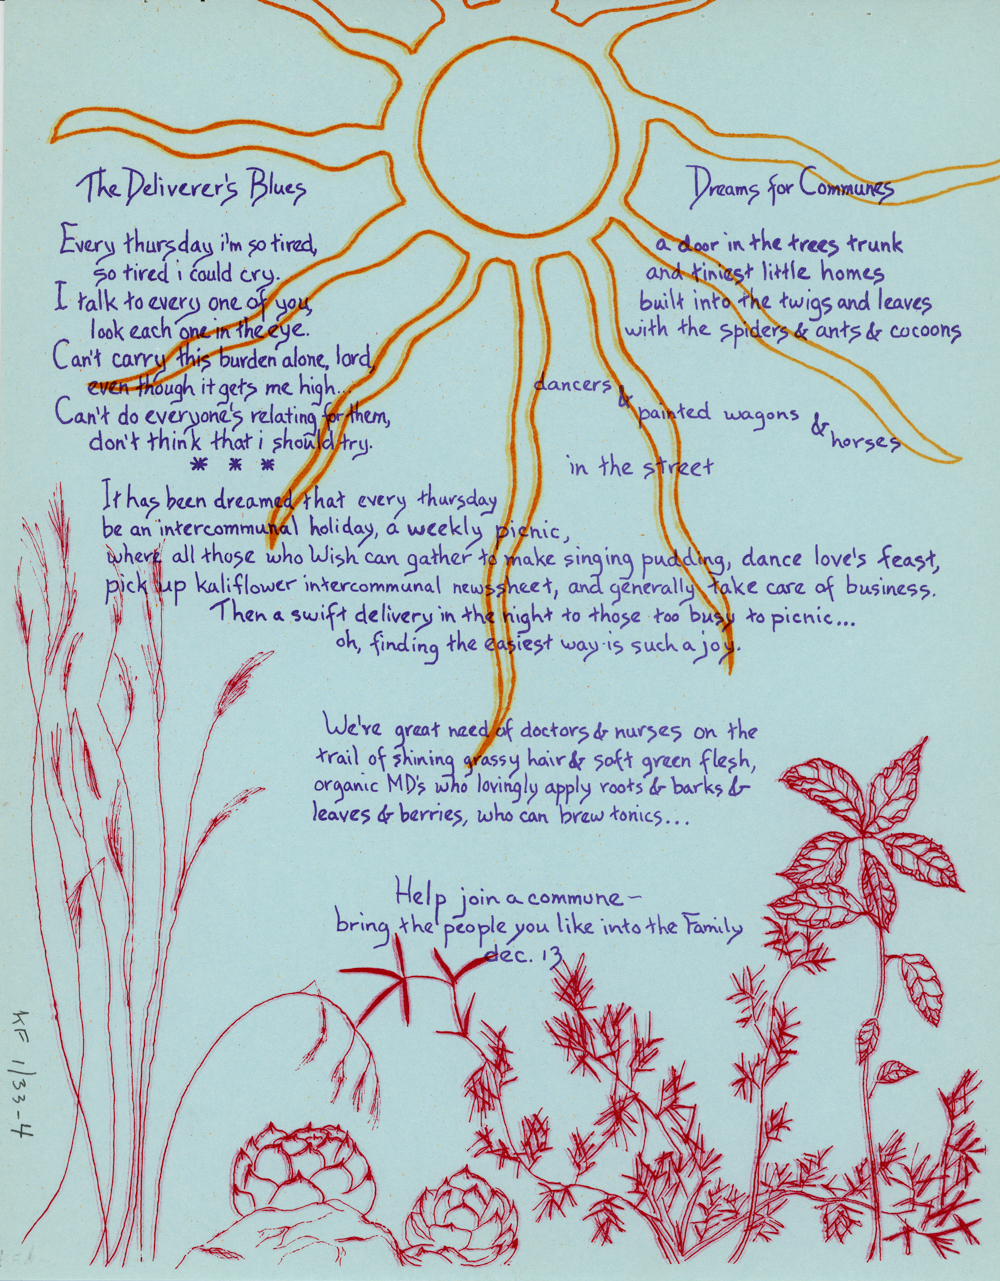 The Deliverer's Blues
Every thursday i'm so tired,
so tired i could cry.
I talk to every one of you,
look each one in the eye.
Can't carry this burden alone, lord,
even though it gets me high...
Can't do everyone's relating for them,
don't think that i should try.
* * *
Dreams for Communes
a door in the trees trunk
and tiniest little homes
built into the twigs and leaves
with the spiders & ants & cocoons
dancers
&
painted wagons
&
horses
in the street
It has been dreamed that every thursday
be an intercommunal holiday, a weekly picnic,
where all those who Wish can gather to make singing pudding, dance love's feast,
pick up kaliflower intercommunal newssheet, and generally take care of business.
Then a swift delivery in the night to those too busy to picnic...
oh, finding the easiest way is such a joy.
We're great need of doctors & nurses on the
trail of shining grassy hair & soft green flesh,
organic MD's who lovingly apply roots & barks &
leaves & berries, who can brew tonics...
Help join a commune –
bring the people you like into the Family
dec. 13
KF 1/33-4